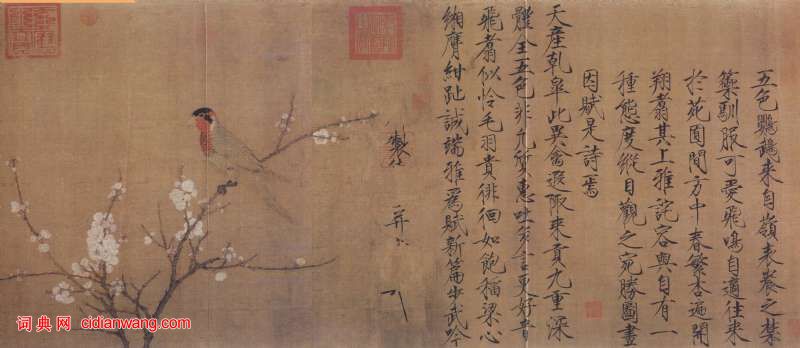 五色鸚鵡来自嶺表養之禁
籞馴服可愛飛鳴自適往来
於苑囿間方中春繁杏遍開
翔翥其上雅詫容與自有一
種態度縱目觀之宛勝圖畫
因賦是詩焉
天産乾皐此異禽遐陬来貢九重深
體全五色非凡質惠吐多言更好音
飛翥似憐毛羽貴徘徊如飽稲粱心
緗膺紺趾誠端雅為賦新篇步武吟
製
并
词典网 cidianwang.com